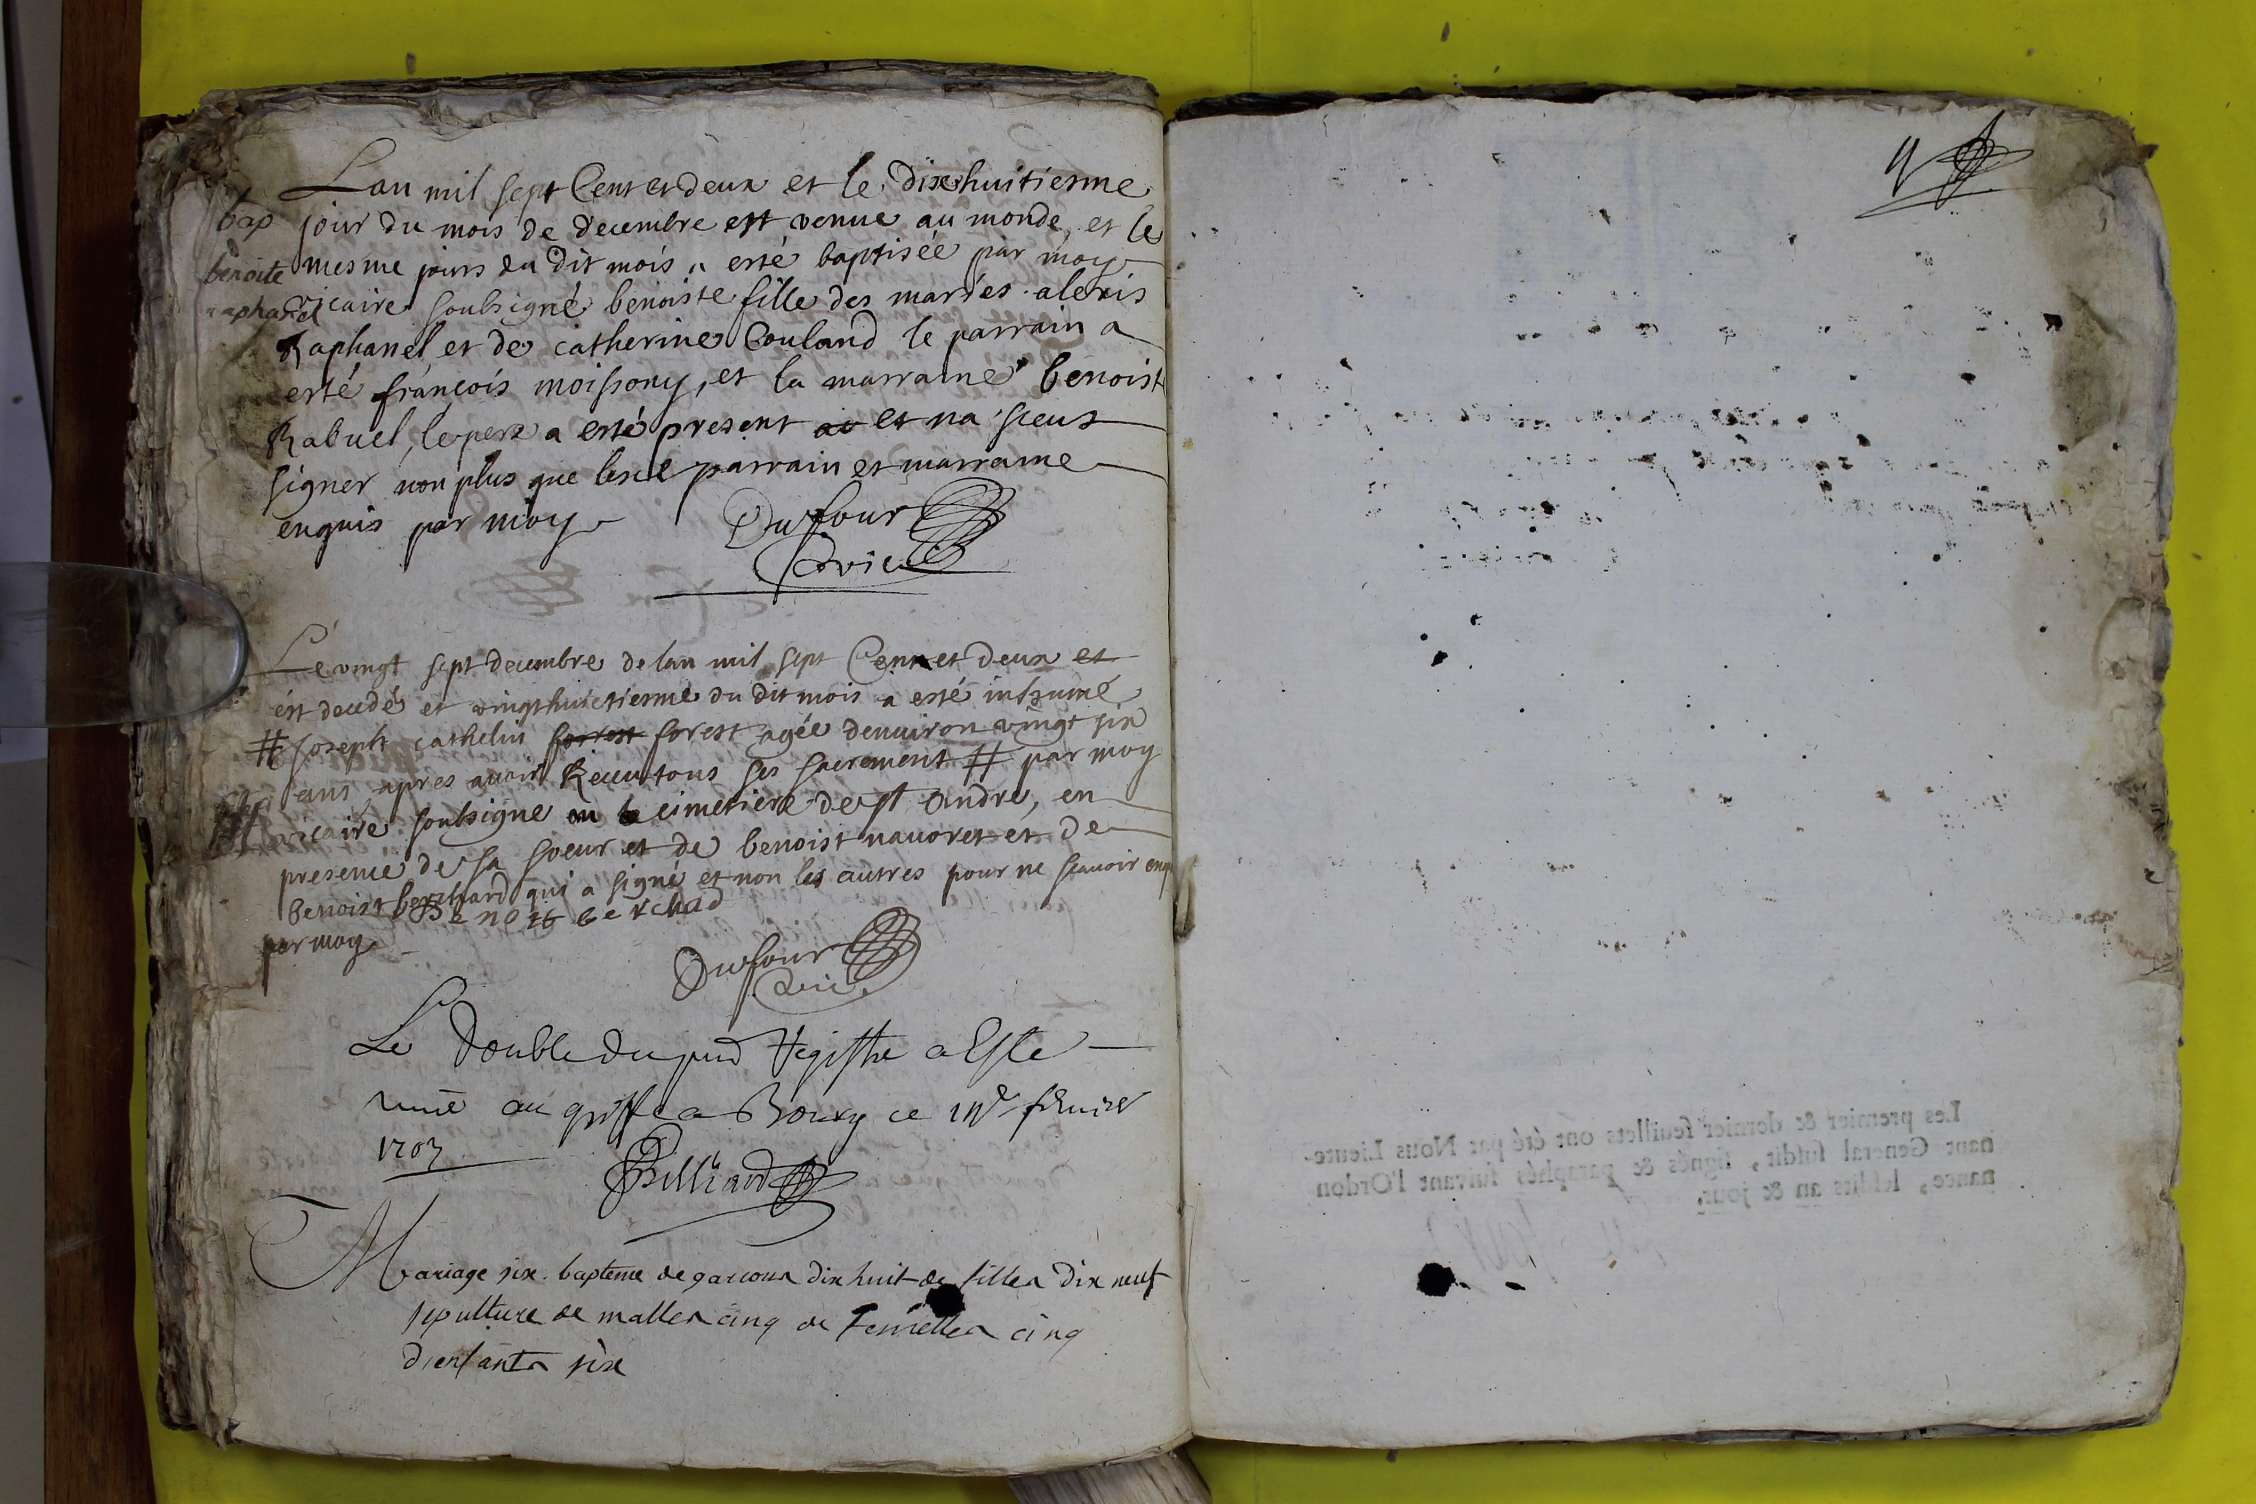 Lan mil sept Cent et deux et le dixhuitiesme
bap jour du mois de decembre est venue au monde, et le
benoite mesme jours du dit mois a esté baptisée par moy
raphanel vicaire soubsigné benoiste fille des mariés alexis
Raphanel et de catherine Couland le parrain a
esté françois moissony, et la marraine benoist
Rabuel, le pere a esté present et na sceus
signer non plus que lesd parrain et marraine
enquis par moy Dufour
vic
Le vingt sept decembre de lan mil sept Cent et deux et
est decedé et vingthuictiesme du dit mois a esté inhumé
# joseph cathelin forrest forest agée denuiron vingt six
ans apres auoir Receu tous ses sacrement # par moy
vicaire soubsigne au cimetiere de st andre, en
presence de sa soeur et de benoist nauoret et de
benoist berchard qui a signé et non les autres pour ne scauoir enq
Benoit berchad
par moy
Dufour
vic.
Le double du pnt Registre a Este
remis au greffe a Bourg ce feburier
1703
Billiard
Mariage six. bapteme de garcons dix huit de filles dix neuf
sepulture de malles cinq de femelles cinq
d'enfants six
Les premier & dernier feuillets ont été par Nous Lieute-
nant General susdit, signés & paraphés suivant l'Ordon
nance, lesdits an & jour.